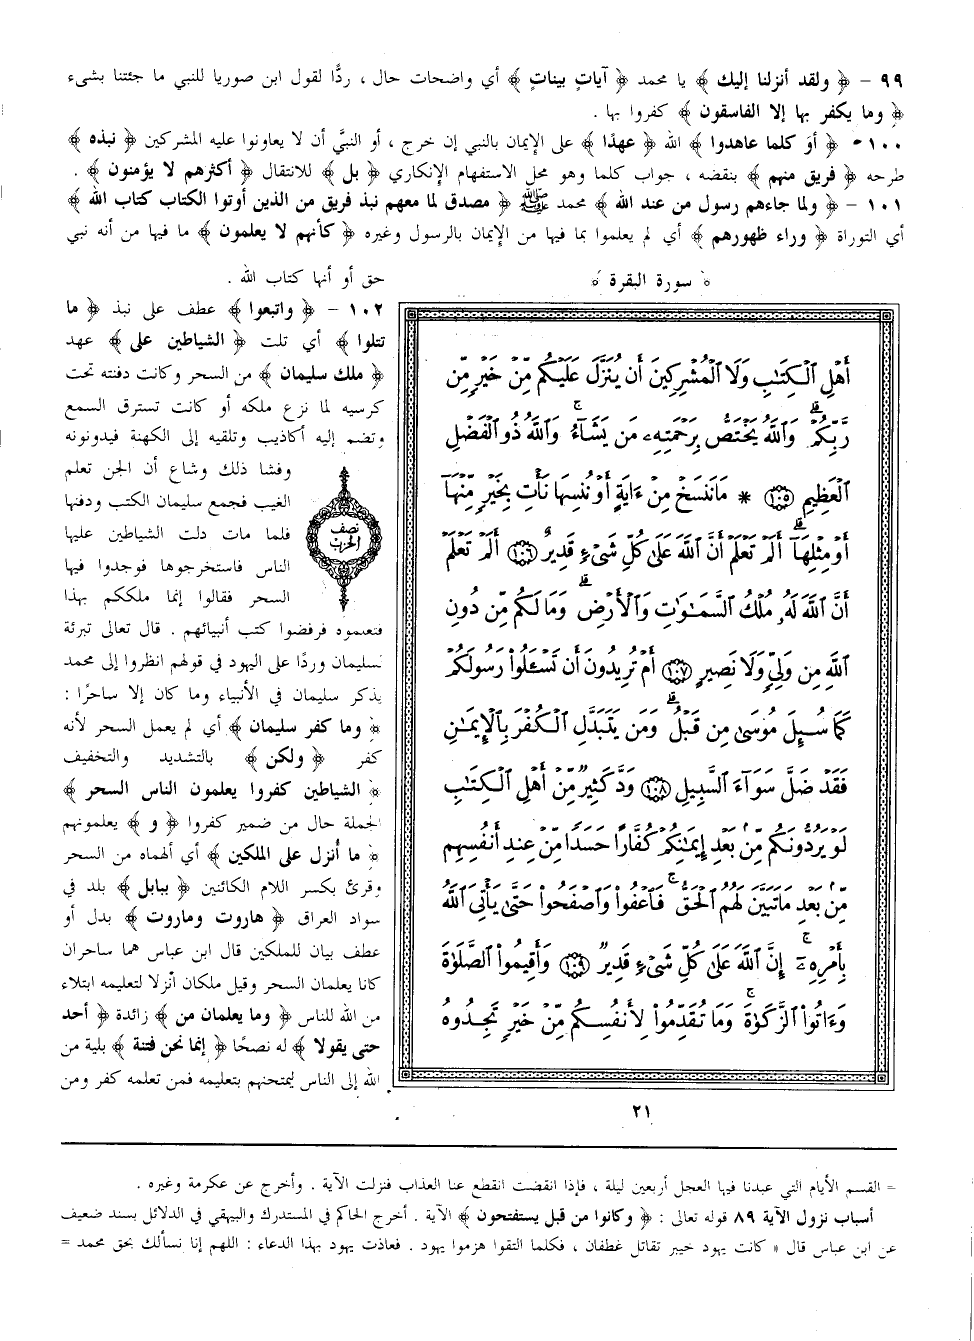 ٩٩ - ﴿ ولقد أنزلنا إليك ﴾ يا محمد ﴿ آيات بينات ﴾ أي واضحات حال ، ردًّا لقول ابن صوريا للنبي ما جئتنا بشىء
﴿ وما يكفر بها إلا الفاسقون ﴾ كفروا بها .
١٠٠ - ﴿ أوَ كلما عاهدوا ﴾ الله ﴿ عهدًا ﴾ على الإيمان بالنبي إن خرج ، أو النبيَّ أن لا يعاونوا عليه المشركين ﴿ نبذه ﴾
طرحه ﴿ فريق منهم ﴾ بنقضه ، جواب كلما وهو محل الاستفهام الإنكاري ﴿ بل ﴾ للانتقال ﴿ أكثرهم لا يؤمنون ﴾ .
١٠١ - ﴿ ولما جاءهم رسول من عند الله ﴾ محمد ﷺ ﴿ مصدق لما معهم نبذ فريق من الذين أوتوا الكتاب كتاب الله ﴾
أي التوراة ﴿ وراء ظهورهم ﴾ أي لم يعلموا بما فيها من الإيمان بالرسول وغيره ﴿ كأنهم لا يعلمون ﴾ ما فيها من أنه نبي
حق أو أنها كتاب الله .
﴿ سورة البقرة ﴾
أَهْلِ الْكِتَٰبِ وَلَا الْمُشْرِكِينَ أَن يُنَزَّلَ عَلَيْكُم مِّنْ خَيْرٍ مِّن
رَّبِّكُمْ ۗ وَاللَّهُ يَخْتَصُّ بِرَحْمَتِهِۦ مَن يَشَآءُ ۚ وَاللَّهُ ذُو الْفَضْلِ
الْعَظِيمِ ١٠٥ * مَا نَنسَخْ مِنْ ءَايَةٍ أَوْ نُنسِهَا نَأْتِ بِخَيْرٍ مِّنْهَآ
أَوْ مِثْلِهَآ ۗ أَلَمْ تَعْلَمْ أَنَّ اللَّهَ عَلَىٰ كُلِّ شَىْءٍ قَدِيرٌ ١٠٦ أَلَمْ تَعْلَمْ
أَنَّ اللَّهَ لَهُۥ مُلْكُ السَّمَٰوَٰتِ وَالْأَرْضِ ۗ وَمَا لَكُم مِّن دُونِ
اللَّهِ مِن وَلِىٍّ وَلَا نَصِيرٍ ١٠٧ أَمْ تُرِيدُونَ أَن تَسْـَٔلُوا رَسُولَكُمْ
كَمَا سُئِلَ مُوسَىٰ مِن قَبْلُ ۗ وَمَن يَتَبَدَّلِ الْكُفْرَ بِالْإِيمَٰنِ
فَقَدْ ضَلَّ سَوَآءَ السَّبِيلِ ١٠٨ وَدَّ كَثِيرٌ مِّنْ أَهْلِ الْكِتَٰبِ
لَوْ يَرُدُّونَكُم مِّنۢ بَعْدِ إِيمَٰنِكُمْ كُفَّارًا حَسَدًا مِّنْ عِندِ أَنفُسِهِم
مِّنۢ بَعْدِ مَا تَبَيَّنَ لَهُمُ الْحَقُّ ۚ فَاعْفُوا وَاصْفَحُوا حَتَّىٰ يَأْتِىَ اللَّهُ
بِأَمْرِهِۦٓ ۚ إِنَّ اللَّهَ عَلَىٰ كُلِّ شَىْءٍ قَدِيرٌ ١٠٩ وَأَقِيمُوا الصَّلَوٰةَ
وَءَاتُوا الزَّكَوٰةَ ۚ وَمَا تُقَدِّمُوا لِأَنفُسِكُم مِّنْ خَيْرٍ تَجِدُوهُ
٢١
١٠٢ - ﴿ واتبعوا ﴾ عطف على نبذ ﴿ ما
تتلوا ﴾ أي تلت ﴿ الشياطين على ﴾ عهد
﴿ ملك سليمان ﴾ من السحر وكانت دفنته تحت
كرسيه لما نزع ملكه أو كانت تسترق السمع
وتضم إليه أكاذيب وتلقيه إلى الكهنة فيدونونه
وفشا ذلك وشاع أن الجن تعلم
الغيب فجمع سليمان الكتب ودفنها
فلما مات دلت الشياطين عليها
الناس فاستخرجوها فوجدوا فيها
السحر فقالوا إنما ملككم بهذا
نصف
الحزب
فتعلموه فرفضوا كتب أنبيائهم . قال تعالى تبرئة
لسليمان وردًا على اليهود في قولهم انظروا إلى محمد
يذكر سليمان في الأنبياء وما كان إلا ساحرًا :
﴿ وما كفر سليمان ﴾ أي لم يعمل السحر لأنه
كفر ﴿ ولكن ﴾ بالتشديد والتخفيف
﴿ الشياطين كفروا يعلمون الناس السحر ﴾
الجملة حال من ضمير كفروا ﴿ و ﴾ يعلمونهم
﴿ ما أنزل على الملكين ﴾ أي ألهماه من السحر
وقرئ بكسر اللام الكائنين ﴿ ببابل ﴾ بلد في
سواد العراق ﴿ هاروت وماروت ﴾ بدل أو
عطف بيان للملكين قال ابن عباس هما ساحران
كانا يعلمان السحر وقيل ملكان أنزلا لتعليمه ابتلاء
من الله للناس ﴿ وما يعلمان من ﴾ زائدة ﴿ أحد
حتى يقولا ﴾ له نصحًا ﴿ إنما نحن فتنة ﴾ بلية من
الله إلى الناس ليمتحنهم بتعليمه فمن تعلمه كفر ومن
= القسم الأيام التي عبدنا فيها العجل أربعين ليلة ، فإذا انقضت انقطع عنا العذاب فنزلت الآية . وأخرج عن عكرمة وغيره .
أسباب نزول الآية ٨٩ قوله تعالى : ﴿ وكانوا من قبل يستفتحون ﴾ الآية . أخرج الحاكم في المستدرك والبيهقي في الدلائل بسند ضعيف
عن ابن عباس قال « كانت يهود خيبر تقاتل غطفان ، فكلما التقوا هزموا يهود . فعاذت يهود بهذا الدعاء : اللهم إنا نسألك بحق محمد =